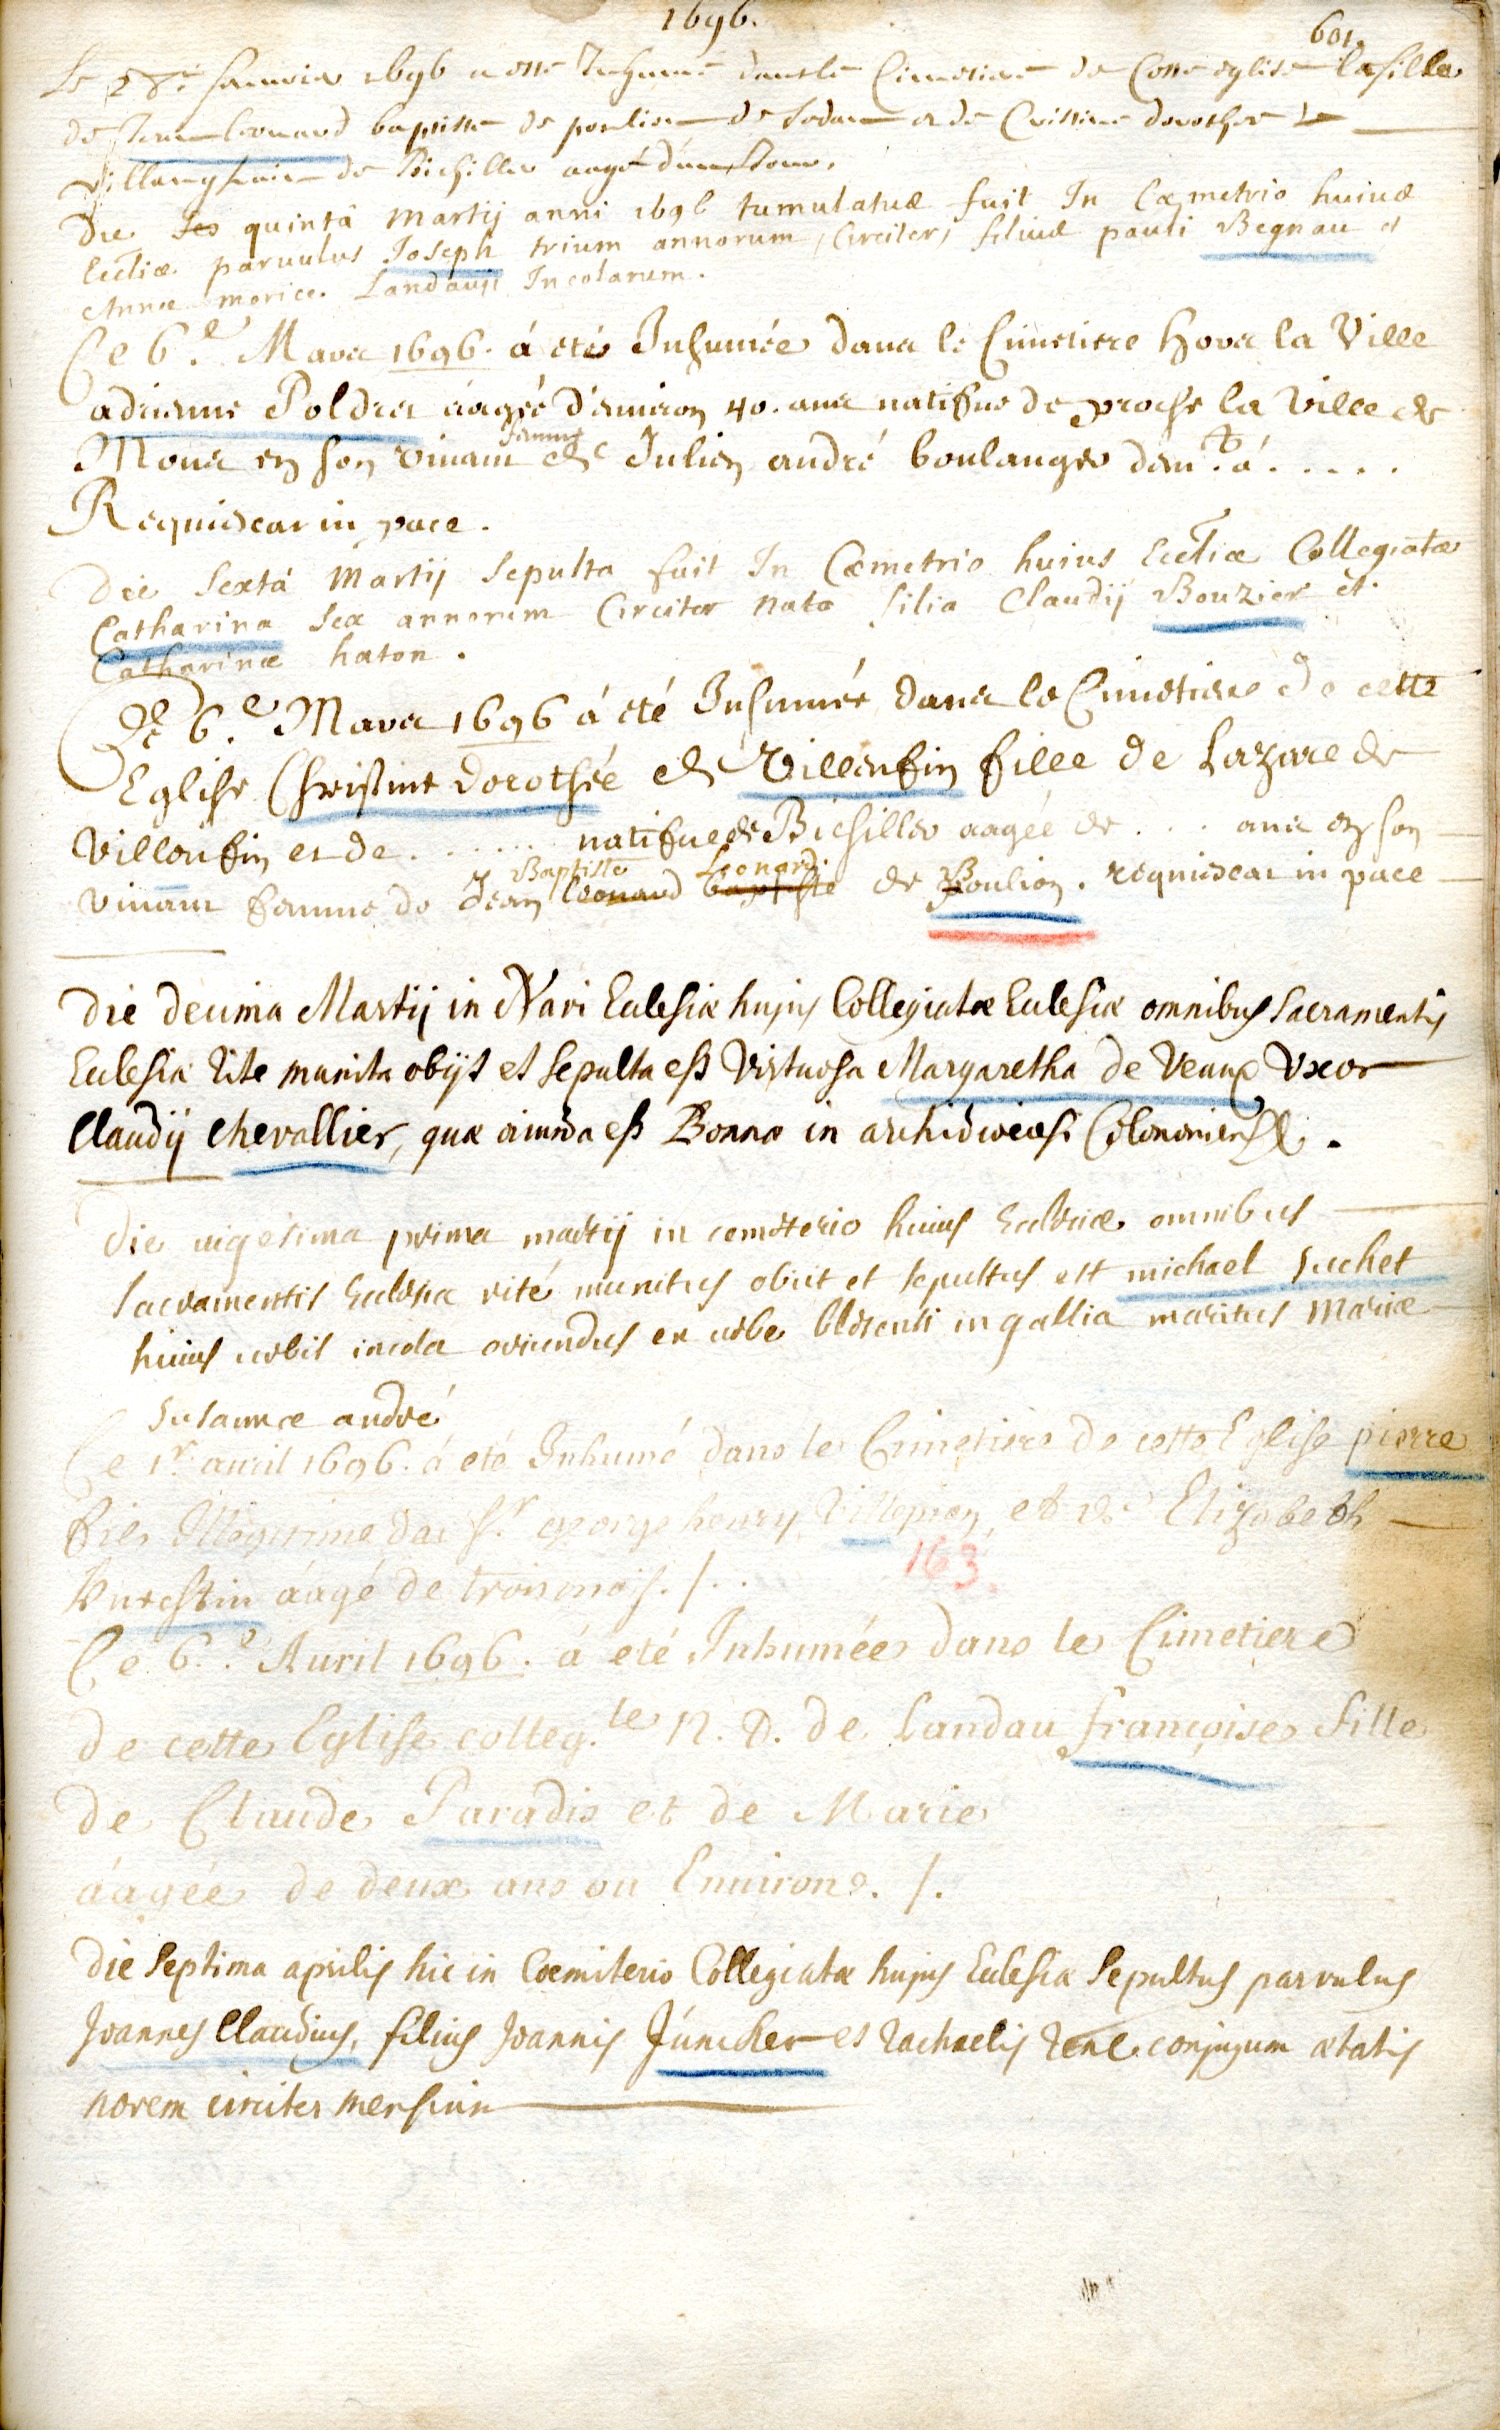 1696.
601.
Le 28e Januier 1696 a este Inhumé dans le Cimetiere de Cette eglise la fille
de Jean Leonard baptiste de poulion de Sedan et de Cristine dorothee de
de Bichiller aagé d'un Jour.
Die quintâ Martij anni 1696 tumulatus fuit In Cæmetrio huius
Ecctiæ paruulus Joseph trium annorum circiter, filius pauli Begnau et
Annæ morice Landauij Incolarum.
Ce 6.e Mars 1696. á eté Inhumée dans le Cimetiere hors la Ville
adrienne Poldrer áagée d'enuiron 40. ans natifue de proche la Ville de
Mons en son viuant femme de Julien andré boulanger dem.t á . . . . .
Requiescat in pace.
Die Sextâ Martij Sepulta fuit In Cæmetrio huius Ecctiæ Collegiatæ
Catharina Sex annorum Circiter nata filia Claudij Bouzier et
Catharinæ haton.
Le 6.e Mars 1696 á été Inhumée dans le Cimetiere de cette
Eglise Christine Dorothée de Villenfin fille de Lazare de
Villenfin et de . . . . . . natifue de Bichiller aagée de . . . ans en son
viuant femme de Jean Baptiste leonard Leonard baptiste de Poulion. requiescat in pace
Die decima Martij in Navi Eclesiæ hujus Collegiatæ Eclesiæ omnibus sacramentis
Eclesiæ rite munita obijt et sepulta est Virtuosa Margaretha de Veaux Uxor
Claudij chevallier, quæ oriunda est Bonnæ in archidiœcesi Coloniensi.
Die uigesima prima martij in cemeterio huius Ecclesiæ omnibus
sacramentis Ecclesiæ rité munitus obiit et sepultus est michael suchet
huius urbis incola oriundus ex urbe blesensi in gallia maritus Mariæ
susannæ andré
Ce 1r. auril 1696. á eté Inhumé dans le Cimetiere de cette Eglise pierre
fils Illegitime du Sr. george henry Villepion, et de Elizabeth
áagé de trois mois. /. .
163.
Ce 6.e Auril 1696. á eté Inhumée dans le Cimetiere
de cette Eglise colleg.le N. D. de Landau françoise fille
de Claude Paradis et de Marie
áagée de deux ans ou Enuiron. /.
Die septima aprilis hic in Coemiterio Collegiatæ hujus Eclesiæ sepultus parvulus
Joannes Claudius, filius Joannis Júncker et Rachaelis René conjugum ætatis
novem circiter mensium